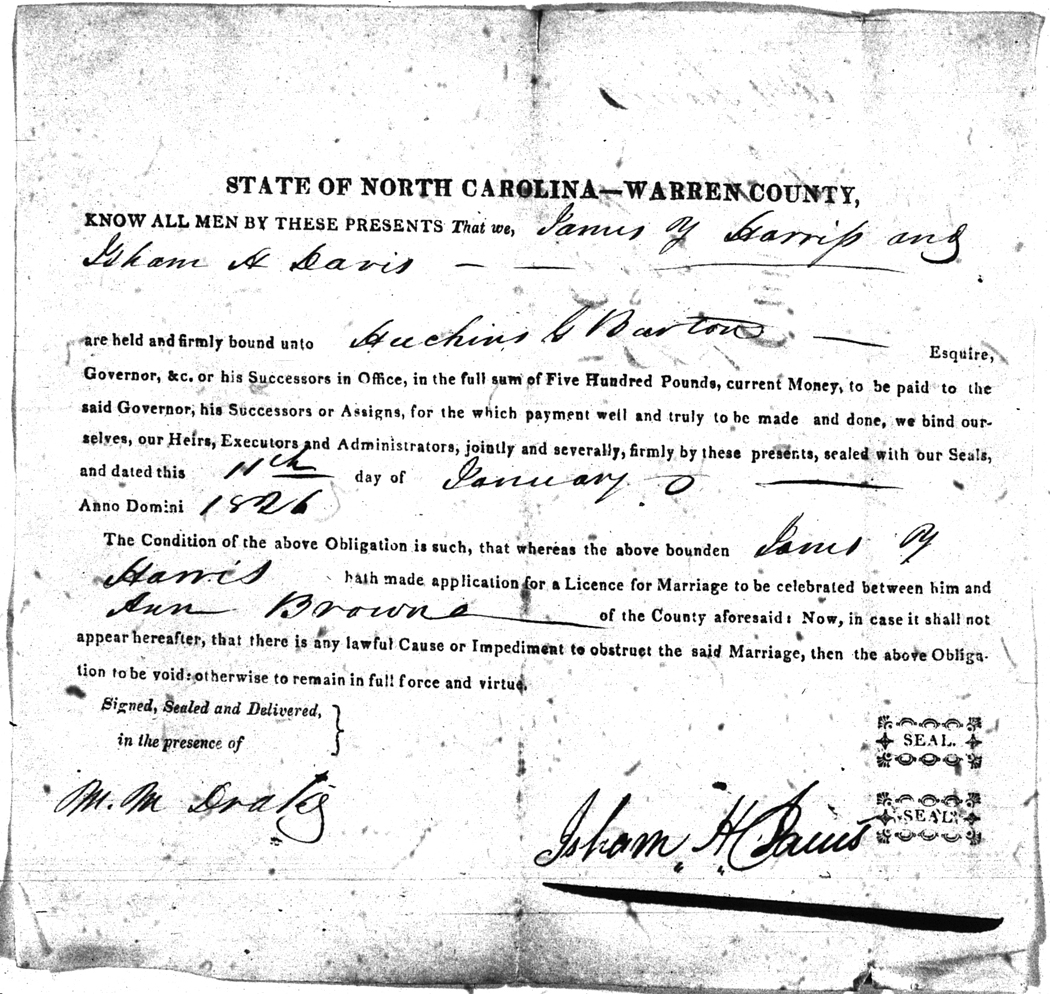 STATE OF NORTH CAROLINA—WARREN COUNTY,
KNOW ALL MEN BY THESE PRESENTS That we, James Y Harriss and
Isham H Davis — —
are held and firmly bound unto Hutchins G Burton — Esquire,
Governor, &c. or his Successors in Office, in the full sum of Five Hundred Pounds, current Money, to be paid to the
said Governor, his Successors or Assigns, for the which payment well and truly to be made and done, we bind our-
selves, our Heirs, Executors and Administrators, jointly and severally, firmly by these presents, sealed with our Seals,
and dated this 11th day of January
Anno Domini 1826
The Condition of the above Obligation is such, that whereas the above bounden James Y
Harris hath made application for a Licence for Marriage to be celebrated between him and
Ann Browne of the County aforesaid: Now, in case it shall not
appear hereafter, that there is any lawful Cause or Impediment to obstruct the said Marriage, then the above Obliga-
tion to be void: otherwise to remain in full force and virtue.
Signed, Sealed and Delivered,
in the presence of
SEAL.
M. M Drake
SEAL.
Isham H Davis